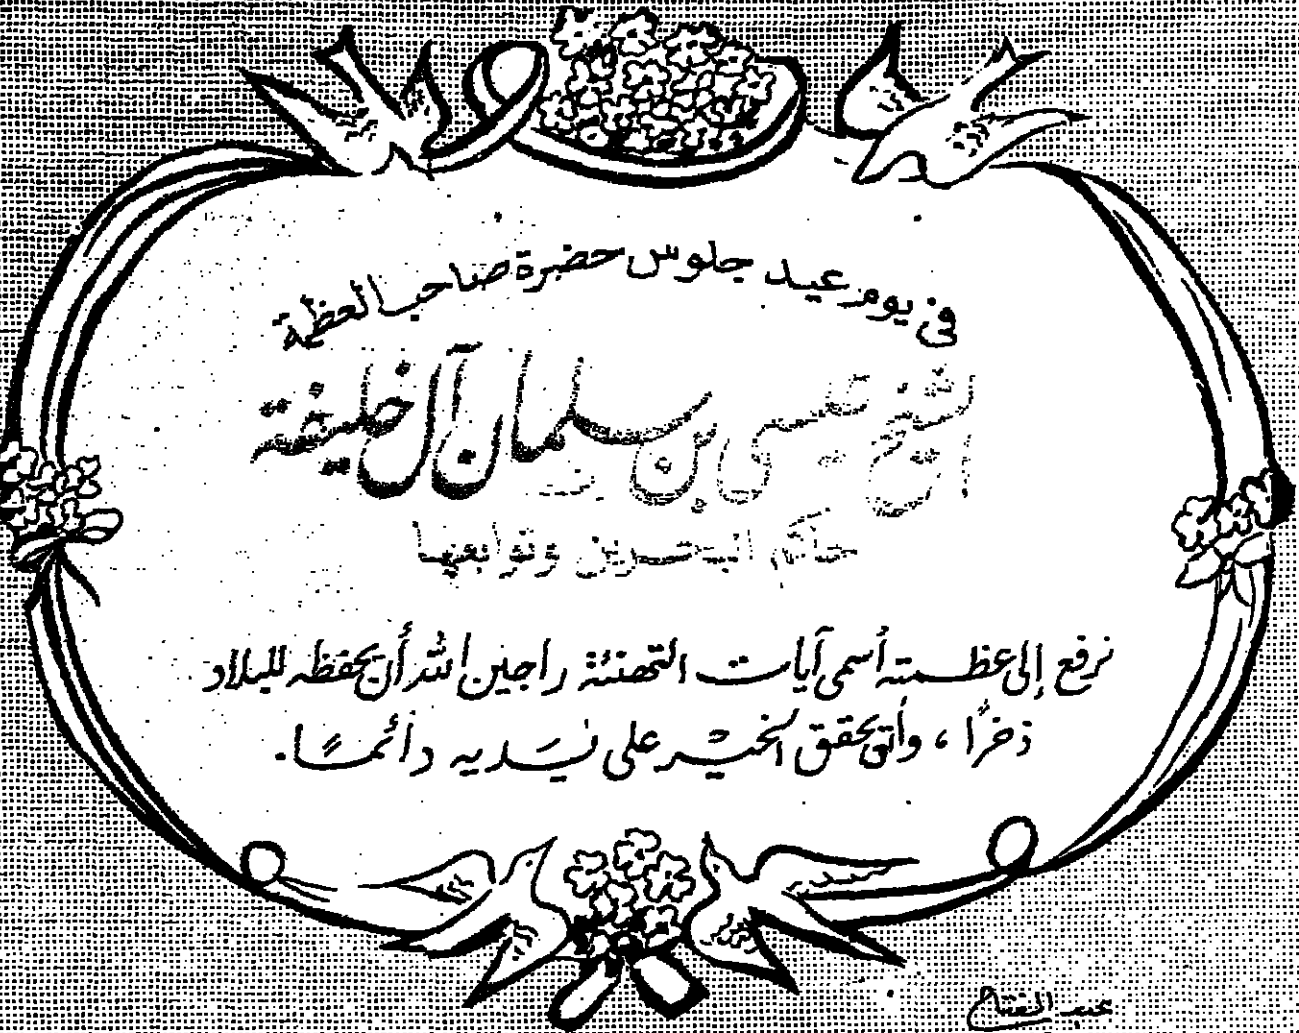 في يوم عيد جلوس حضرة صاحب العظمة
الشيخ عيسى بن سلمان آل خليفة
حاكم البحرين وتوابعها
نرفع إلى عظمته أسمى آيات التهنئة راجين الله أن يحفظه للبلاد
ذخرًا ، وأن يحقق الخير على يديه دائمًا.
عبد الفتاح